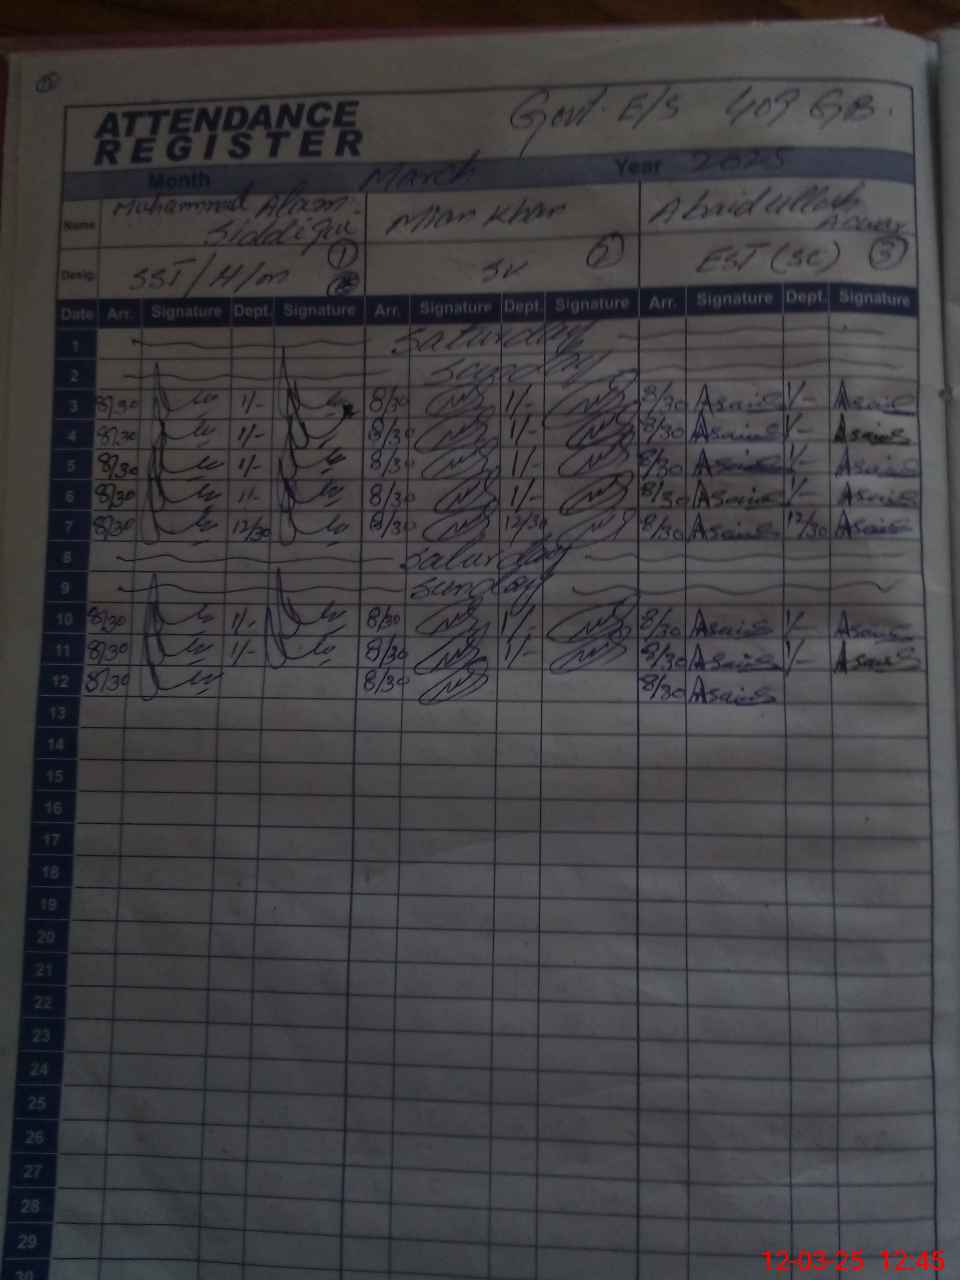 ATTENDANCE
REGISTER
Govt. E/S 409 GB.
Month March Year 2025
Name Muhammad Siddique Mian Khan
Desig. SST/H/m ① SV ② EST (SC) ③
Date Arr. Signature Dept. Signature Arr. Signature Dept. Signature Arr. Signature Dept. Signature
1 Saturday
2 Sunday
3 8/30 1/- 8/30 1/- 8/30 1/-
4 8/30 1/- 8/30 1/- 8/30 1/-
5 8/30 1/- 8/30 1/- 8/30 1/-
6 8/30 1/- 8/30 1/- 8/30 1/-
7 8/30 12/30 8/30 12/30 8/30 12/30
8 Saturday
9 Sunday
10 8/30 1/- 8/30 1/- 8/30 1/-
11 8/30 1/- 8/30 1/- 8/30 1/-
12 8/30 8/30 8/30
13
14
15
16
17
18
19
20
21
22
23
24
25
26
27
28
29
30
12-03-25 12:45